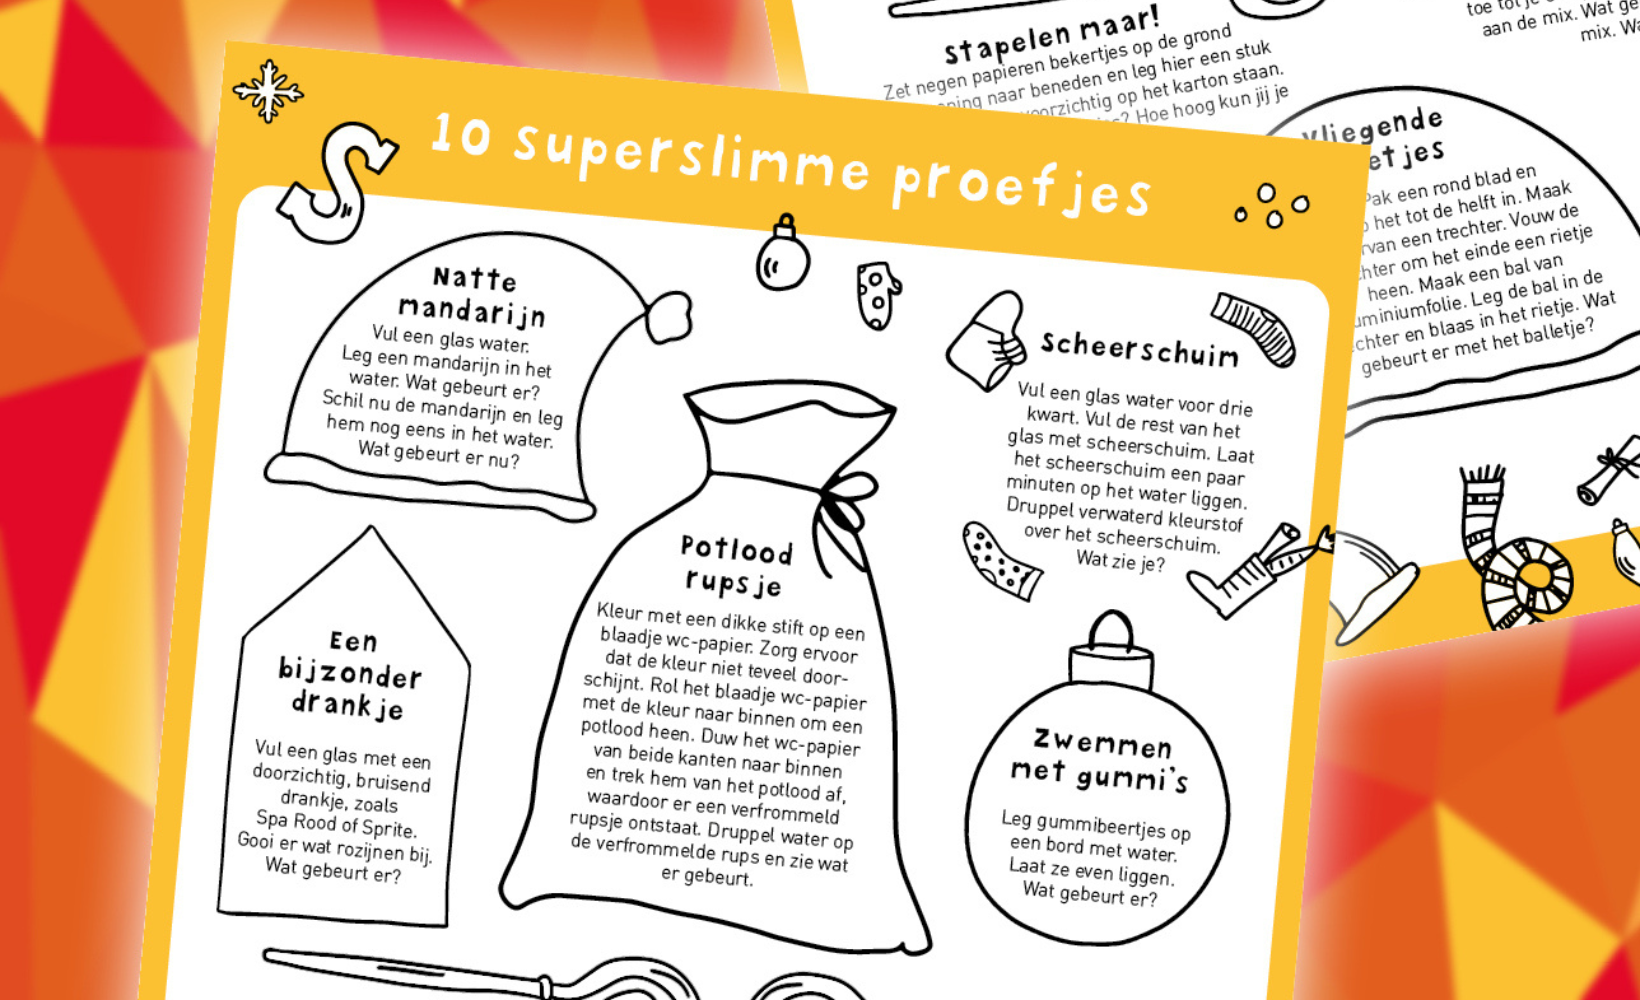 10 superslimme proefjes
Natte
mandarijn
Vul een glas water.
Leg een mandarijn in het
water. Wat gebeurt er?
Schil nu de mandarijn en leg
hem nog eens in het water.
Wat gebeurt er nu?
Scheerschuim
Vul een glas water voor drie
kwart. Vul de rest van het
glas met scheerschuim. Laat
het scheerschuim een paar
minuten op het water liggen.
Druppel verwaterd kleurstof
over het scheerschuim.
Wat zie je?
Potlood
rupsje
Kleur met een dikke stift op een
blaadje wc-papier. Zorg ervoor
dat de kleur niet teveel door-
schijnt. Rol het blaadje wc-papier
met de kleur naar binnen om een
potlood heen. Duw het wc-papier
van beide kanten naar binnen
en trek hem van het potlood af,
waardoor er een verfrommeld
rupsje ontstaat. Druppel water op
de verfrommelde rups en zie wat
er gebeurt.
Een
bijzonder
drankje
Vul een glas met een
doorzichtig, bruisend
drankje, zoals
Spa Rood of Sprite.
Gooi er wat rozijnen bij.
Wat gebeurt er?
Zwemmen
met gummi's
Leg gummibeertjes op
een bord met water.
Laat ze even liggen.
Wat gebeurt er?
Stapelen maar!
Zet negen papieren bekertjes op de grond
naar beneden en leg hier een stuk
voorzichtig op het karton staan.
Hoe hoog kun jij je
toe tot je
aan de mix. Wat
mix.
Vliegende
Pak een rond blad en
het tot de helft in. Maak
van een trechter. Vouw de
om het einde een rietje
heen. Maak een bal van
Leg de bal in de
en blaas in het rietje. Wat
gebeurt er met het balletje?